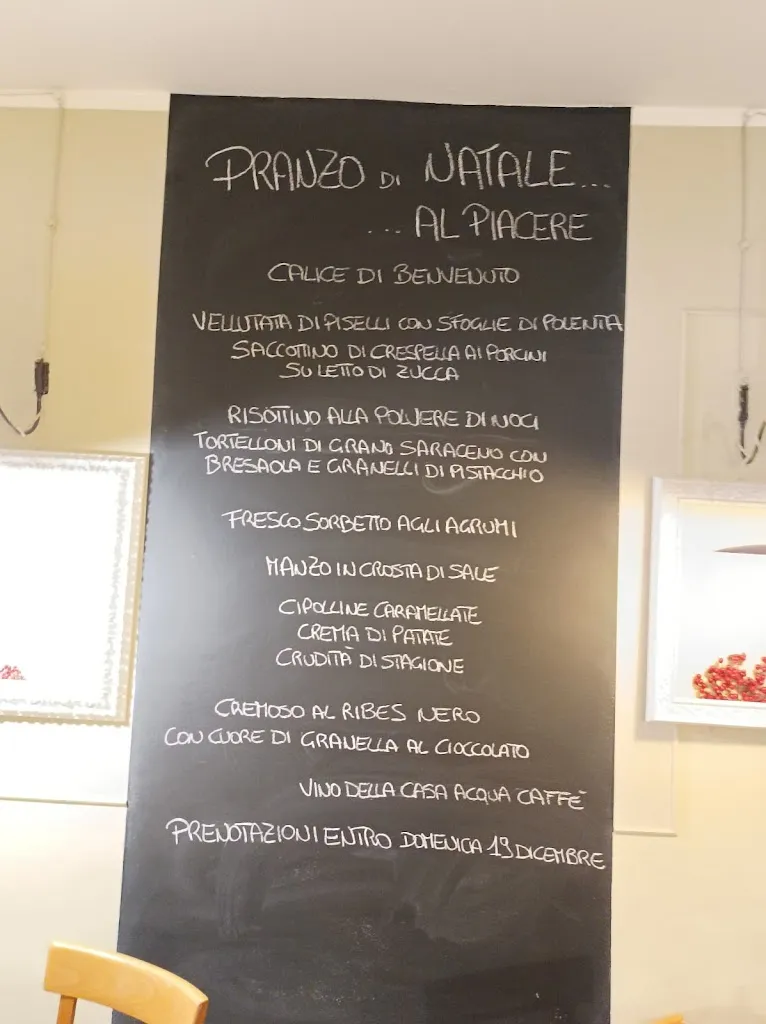 PRANZO DI NATALE...
... AL PIACERE
CALICE DI BENVENUTO
VELLUTATA DI PISELLI CON SFOGLIE DI POLENTA
SACCOTTINO DI CRESPELLA AI PORCINI
SU LETTO DI ZUCCA
RISOTTINO ALLA POLVERE DI NOCI
TORTELLONI DI GRANO SARACENO CON
BRESAOLA E GRANELLI DI PISTACCHIO
FRESCO SORBETTO AGLI AGRUMI
MANZO IN CROSTA DI SALE
CIPOLLINE CARAMELLATE
CREMA DI PATATE
CRUDITÀ DI STAGIONE
CREMOSO AL RIBES NERO
CON CUORE DI GRANELLA AL CIOCCOLATO
VINO DELLA CASA ACQUA CAFFÈ
PRENOTAZIONI ENTRO DOMENICA 19 DICEMBRE